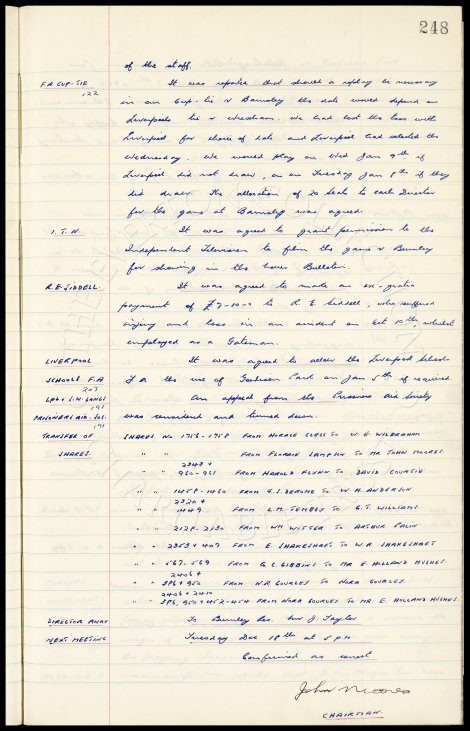 248
of the staff.
F A CUP-TIE It was reported that should a replay be necessary
122 in our Cup-tie v Barnsley the date would depend on
Liverpools tie v Wrexham. We had lost the toss with
Liverpool for choice of date and Liverpool had selected the
Wednesday. We would play on Wed Jan 9th if
Liverpool did not draw, or on Tuesday Jan 8th if they
did draw. The allocation of 20 seats to each Director
for the game at Barnsley was agreed.
I. T. N. It was agreed to grant permission to the
Independent Television to film the game v Burnley
for showing in the News Bulletin.
R. E. SIDDELL. It was agreed to make an ex-gratia
payment of £7-10-0 to R E Siddell, who suffered
injury and loss in an accident on Oct 10th, whilst
employed as a Gateman.
LIVERPOOL It was agreed to allow the Liverpool Schools
SCHOOLS F.A F A the use of Goodison Park on Jan 5th if required
207
An appeal from the Prisoners Aid Society
191
PRISONERS AID. SOC. was considered and turned down.
191
TRANSFER OF SHARES NO 1756-1758 FROM HORACE CLEGG TO W. E. WILBRAHAM
SHARES. " " FROM FLORRIE SAMPSON TO MR JOHN MOORES.
2348 +
" " 960-961 FROM HAROLD FLYNN TO DAVID COURTIE
" " 1458-1460 FROM J. S. DEROME TO W. H. ANDERSON
2320 +
" " 1449 FROM L. M. TEMBEY TO G. T. WILLIAMS.
" " 2128-2130 FROM WM WITTER TO ARTHUR PALIN
" " 2353 + 407 FROM E. SHAKESHAFT TO W. A. SHAKESHAFT
" " 567-569 FROM G. C. GIBBINS TO MR E. HOLLAND HUGHES
2406 +
" " 396 + 950 FROM N. R GOURLEY TO NORA GOURLEY.
2406 + 2450
396, 950 + 452-454 FROM NORA GOURLEY TO MR. E. HOLLAND HUGHES.
DIRECTOR AWAY To Burnley Res. Mr J. Taylor
NEXT MEETING Tuesday Dec 18th at 5 PM
Confirmed as correct
John Moores
CHAIRMAN.